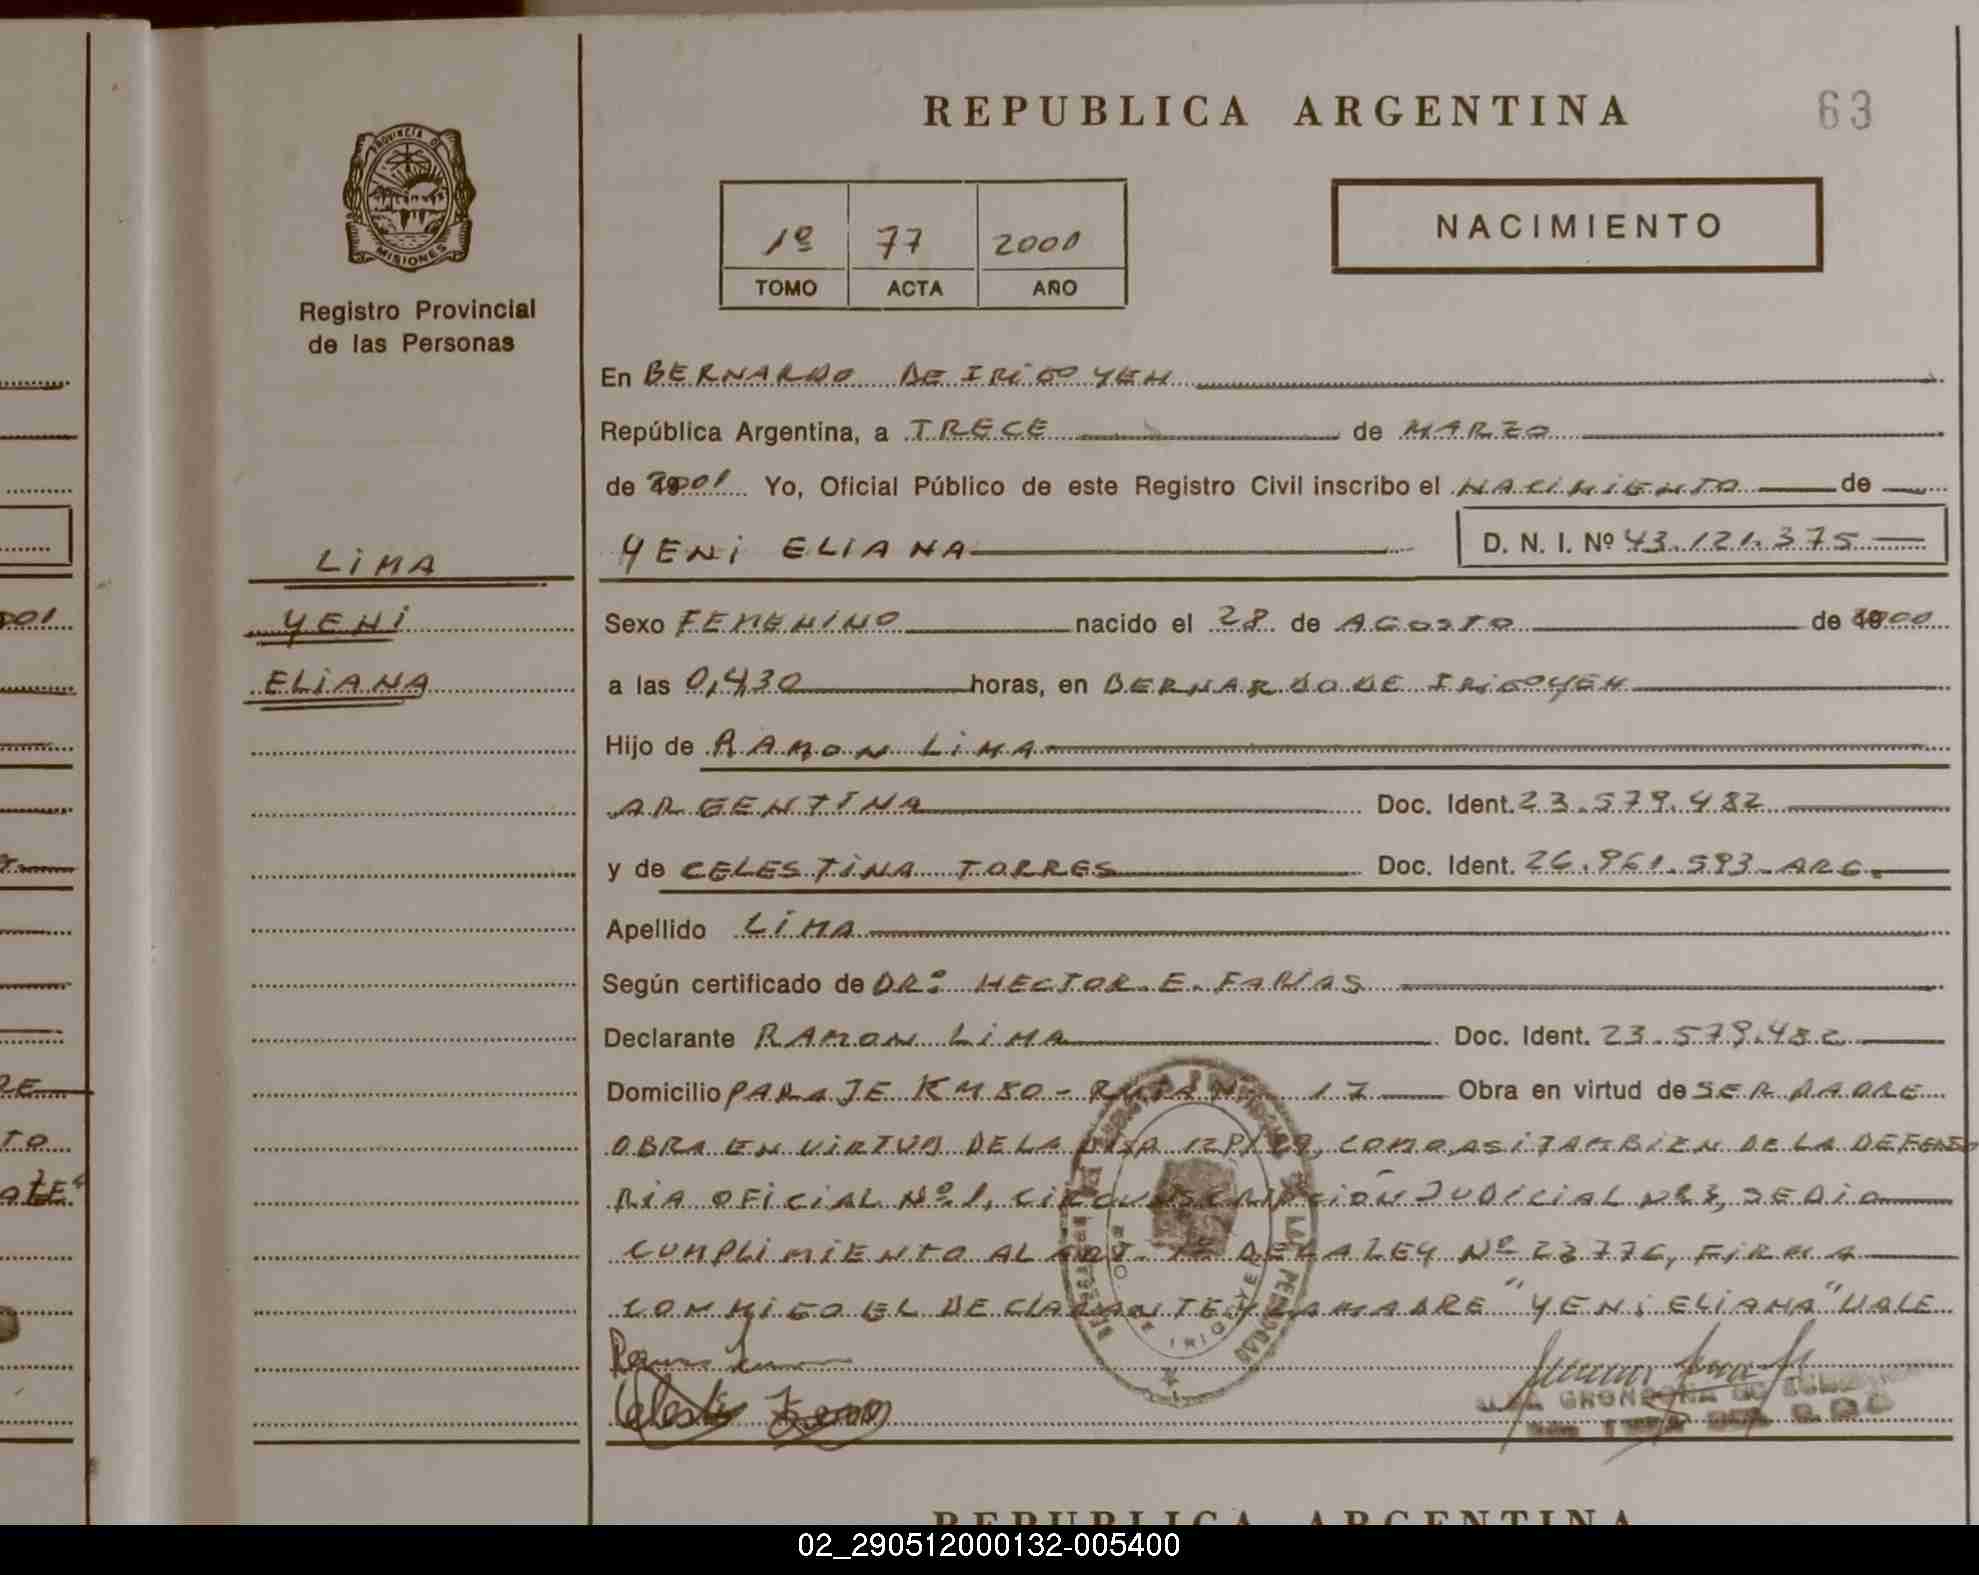 REPUBLICA ARGENTINA
63
PROVINCIA DE MISIONES
Registro Provincial
de las Personas
1º 77 2001
TOMO ACTA AÑO
NACIMIENTO
En BERNARDO DE IRIGOYEN
República Argentina, a TRECE de MARZO
de 2001 Yo, Oficial Público de este Registro Civil inscribo el NACIMIENTO de
YENI ELIANA D. N. I. Nº 43.121.375
LIMA
YENI
ELIANA
Sexo FEMENINO nacido el 28 de AGOSTO de 2000
a las 0,430 horas, en BERNARDO DE IRIGOYEN
Hijo de RAMON LIMA
ARGENTINA Doc. Ident. 23.579.482
y de CELESTINA TORRES Doc. Ident. 26.961.593 - ARG.
Apellido LIMA
Según certificado de DR: HECTOR E. FARIAS
Declarante RAMON LIMA Doc. Ident. 23.579.482
Domicilio PARAJE KM 80 - RUTA Nº 17 Obra en virtud de SER PADRE
OBRA EN VIRTUD DE LA COMO ASI TAMBIEN DE LA DEFENSO
RIA OFICIAL Nº 1, CIRCUNSCRIPCIÓN JUDICIAL Nº 3, SE DIO
CUMPLIMIENTO AL ART. 1º DE LA LEY Nº 23776, FIRMA
CONMIGO EL DECLARANTE Y LA MADRE "YENI ELIANA" VALE
REPUBLICA ARGENTINA
02_290512000132-005400